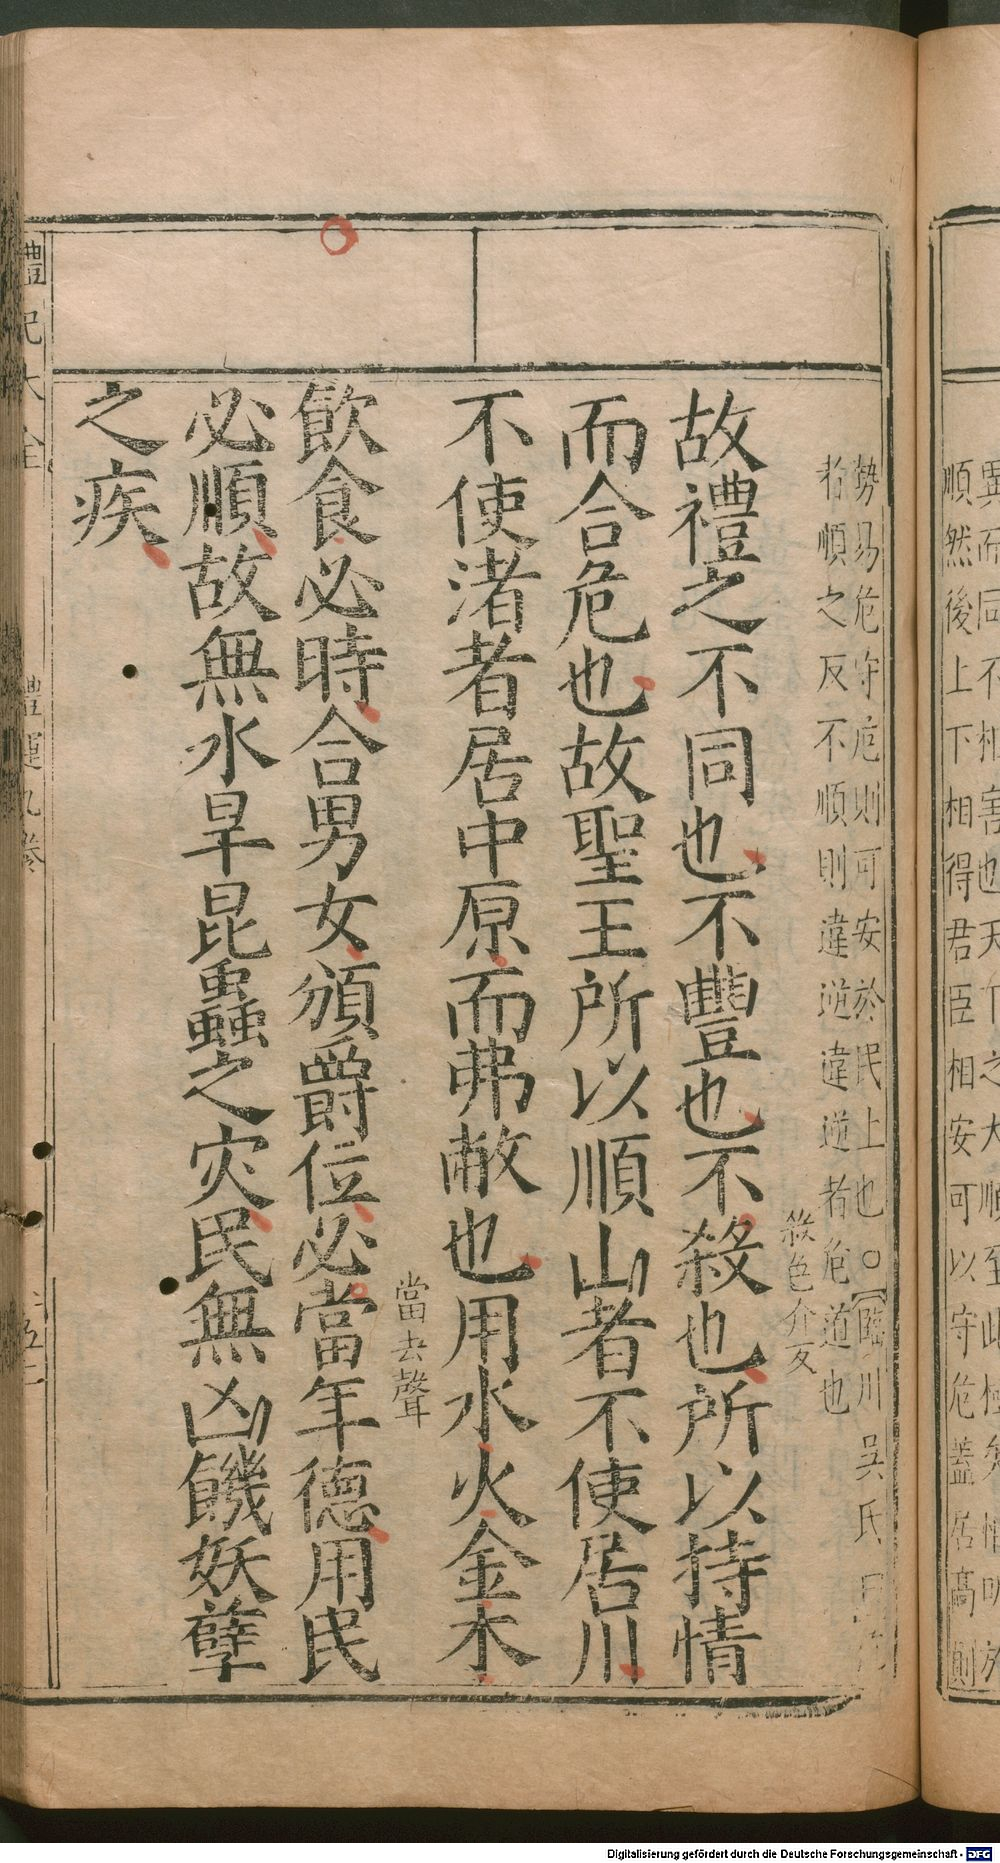 異而同不相害也天下之大順至此極矣惟明於
順然後上下相得君臣相安可以守危蓋居高則
勢易危守危則可安於民上也○臨川吳氏曰危
者順之反不順則違逆違逆者危道也
殺色介反
故禮之不同也不豐也不殺也所以持情
而合危也故聖王所以順山者不使居川
不使渚者居中原而弗敝也用水火金木
當去聲
飲食必時合男女頒爵位必當年德用民
必順故無水旱昆蟲之灾民無凶饑妖孽
之疾
禮記大全 禮運九卷 五二
Digitalisierung gefördert durch die Deutsche Forschungsgemeinschaft - DFG